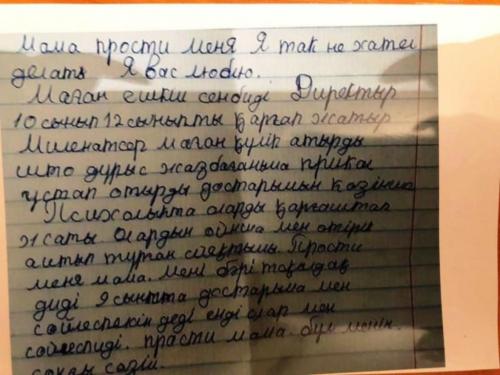 Мама прости меня Я так не хател
делать Я вас люблю.
Маған ешкім сенбиді Директыр
10 сынып 12 сыныпты қарғап жатыр
маған күліп атырды
што дұрыс жазбағаныма прикал
ұстап отырды достарымын көзінше
Психолыкта оларды қорғаштап
жаты. Олардын ойынша мен өтірік
айтып тұрған сияқтымын. Прости
меня мама. Мені бәрі
диді 9 сыныпта достарыма мен
сөйлеспекін деді енді олар мен
сөйлеспиді. прасти мама. бұл менін.
саңғы сөзім.